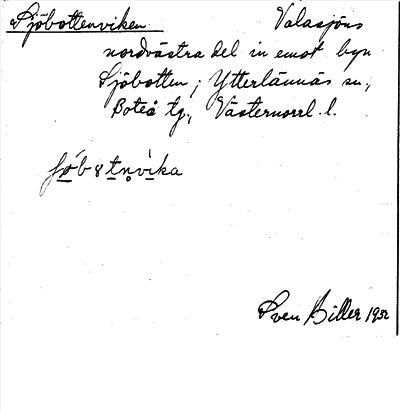 Sjöbottenviken Valasjöns
nordvästra del in emot byn
Sjöbotten; Ytterlännäs sn,
Boteå tg., Västernorrl. l.
Sven Biller 1932